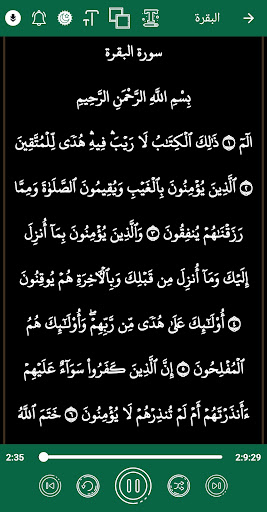 البقرة
سورة البقرة
بِسْمِ اللَّهِ الرَّحْمَنِ الرَّحِيمِ
الٓمٓ ۝١ ذَٰلِكَ ٱلْكِتَٰبُ لَا رَيْبَ ۛ فِيهِ ۛ هُدًى لِّلْمُتَّقِينَ
۝٢ ٱلَّذِينَ يُؤْمِنُونَ بِٱلْغَيْبِ وَيُقِيمُونَ ٱلصَّلَوٰةَ وَمِمَّا
رَزَقْنَٰهُمْ يُنفِقُونَ ۝٣ وَٱلَّذِينَ يُؤْمِنُونَ بِمَآ أُنزِلَ
إِلَيْكَ وَمَآ أُنزِلَ مِن قَبْلِكَ وَبِٱلْءَاخِرَةِ هُمْ يُوقِنُونَ
۝٤ أُو۟لَٰٓئِكَ عَلَىٰ هُدًى مِّن رَّبِّهِمْ ۖ وَأُو۟لَٰٓئِكَ هُمُ
ٱلْمُفْلِحُونَ ۝٥ إِنَّ ٱلَّذِينَ كَفَرُوا۟ سَوَآءٌ عَلَيْهِمْ
ءَأَنذَرْتَهُمْ أَمْ لَمْ تُنذِرْهُمْ لَا يُؤْمِنُونَ ۝٦ خَتَمَ ٱللَّهُ
2:35 2:9:29